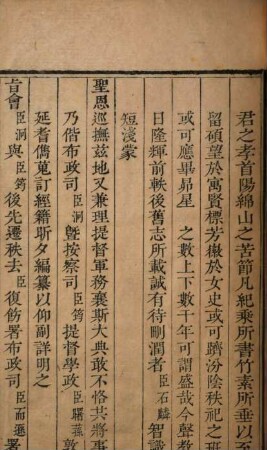 君之孝首陽綿山之苦節凡紀乘所書竹素所垂以至
留碩望於寓賢標芳徽於女史或可躋汾陰秩祀之班
或可應畢昴星之數上下數千年可謂盛哉今聲教
日隆輝前軼後舊志所載誠有待刪潤者臣石麟智識
短淺蒙
聖恩巡撫茲地又兼理提督軍務襄斯大典敢不恪共將事
乃偕布政司臣洞暨按察司臣筠提督學政臣
延耆儁蒐訂經籍斯夕編纂以仰副詳明之
旨會臣洞與臣筠後先遷秩去臣復飭署布政司臣而遜署